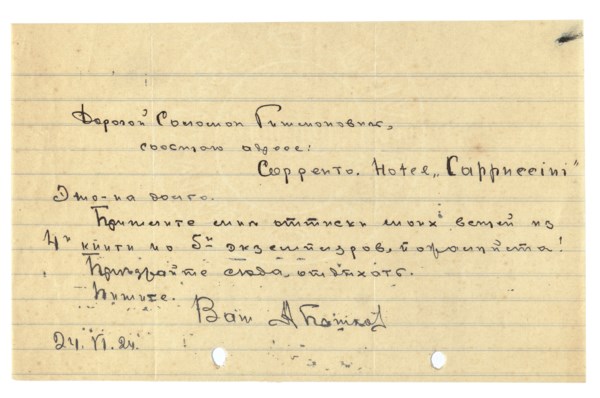 Дорогой Соломон Гитмонович,
сообщаю адрес:
Сорренто. Hotel „Cappuccini"
Это - на долго.
Пришлите мне оттиски моих вещей из
4й книги по 5и экземпляров, пожалуйста!
Приезжайте сюда, отдыхать.
Пишите.
Ваш А Пешков
24.VI.24.